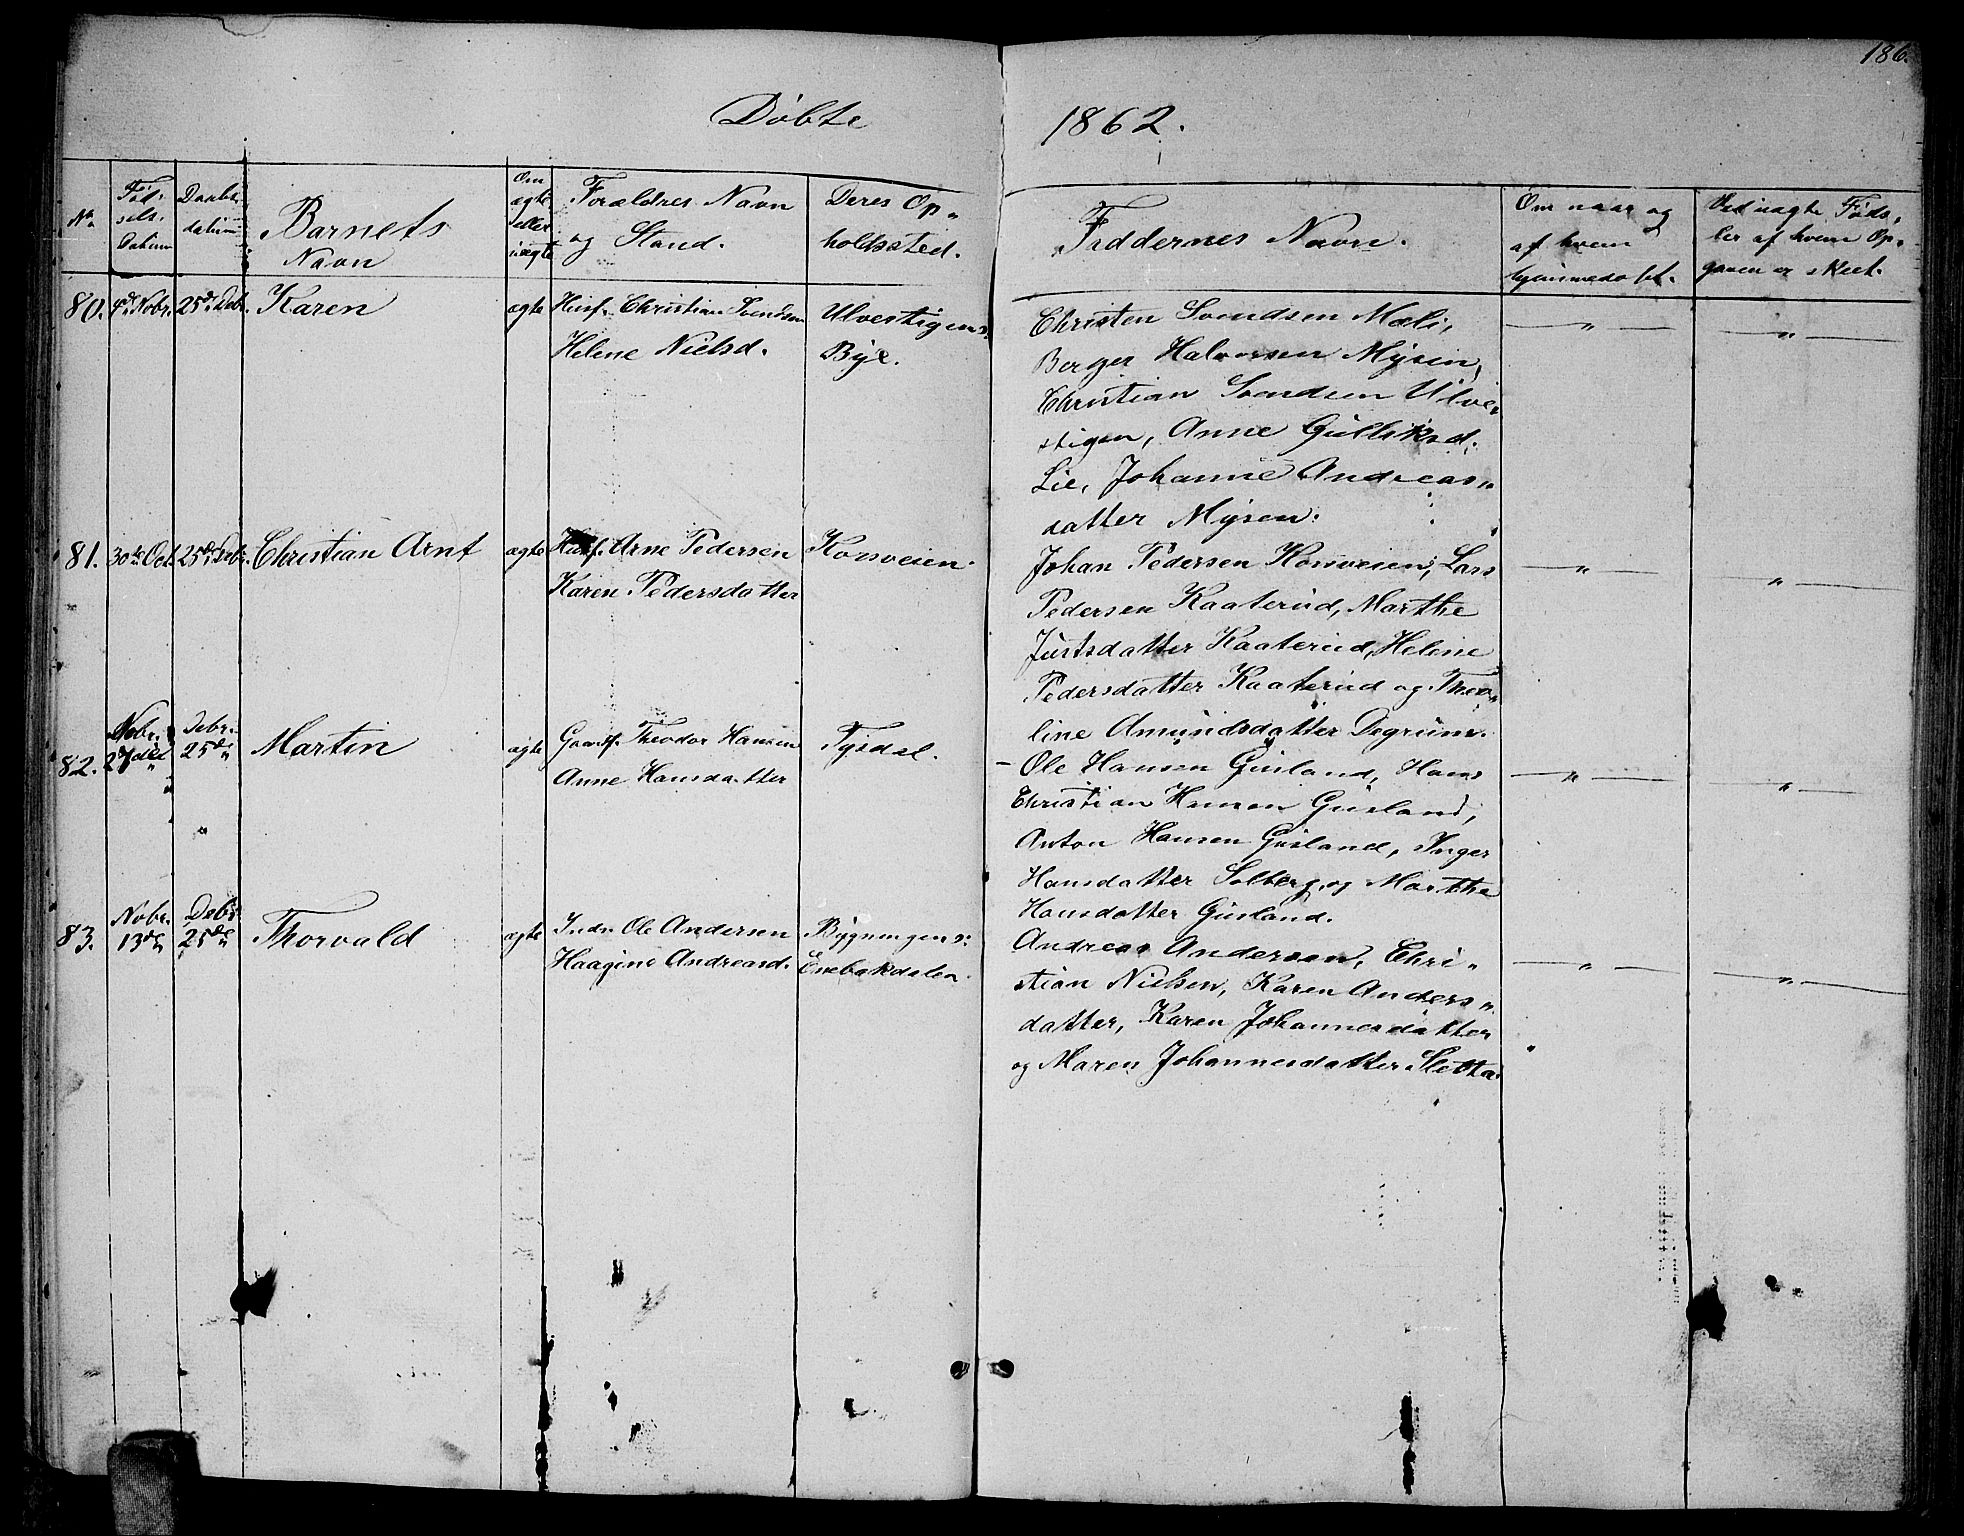 186.
Døbte 1862.
No.
Fød-
sels-
Datum
Daabs-
datum
Barnets
Navn
Om
ægte
eller
uægte
Forældres Navn
og Stand.
Deres Op-
holdssted.
Faddernes Navn.
Om naar og
af hvem
hjemmedøbt.
Ved uægte Føds-
ler af hvem Op-
gaven er skeet.
80. 4de Nobr. 25de Debr. Karen ægte
Husf. Christian Svendsen
Helene Nielsd.
Ulvestigens
Bye.
Christen Svendsen Mæli,
Berger Halvorsen Mysen,
Christian Svendsen Ulve-
stigen, Anne Gulliksd.
Lie, Johanne Andreas-
datter Mysen.
81. 30te Oct. 25de Debr. Christian Arnt ægte
Husf. Arne Pedersen
Karen Pedersdatter
Korsveien.
Johan Pedersen Korsveien, Lars
Pedersen Kaaterud, Marthe
Justsdatter Kaaterud, Helene
Pedersdatter Kaaterud og Theo-
line Amundsdatter Degrum.
82. Nobr. 27de Debr. 25de Martin ægte
Gaardf. Theodor Hansen
Anne Hansdatter
Tysdal.
Ole Hansen Gusland, Hans
Christian Hansen Gusland,
Anton Hansen Gusland, Inger
Hansdatter Solberg og Marthe
Hansdatter Gusland.
83. Nobr. 13de Debr. 25de Thorvald ægte
Inds. Ole Andersen
Haagine Andreasd.
Bygningens
Enebakdalen.
Andreas Andersen, Chri-
stian Nielsen, Karen Anders-
datter, Karen Johannesdatter
og Maren Johannesdatter Sletta.